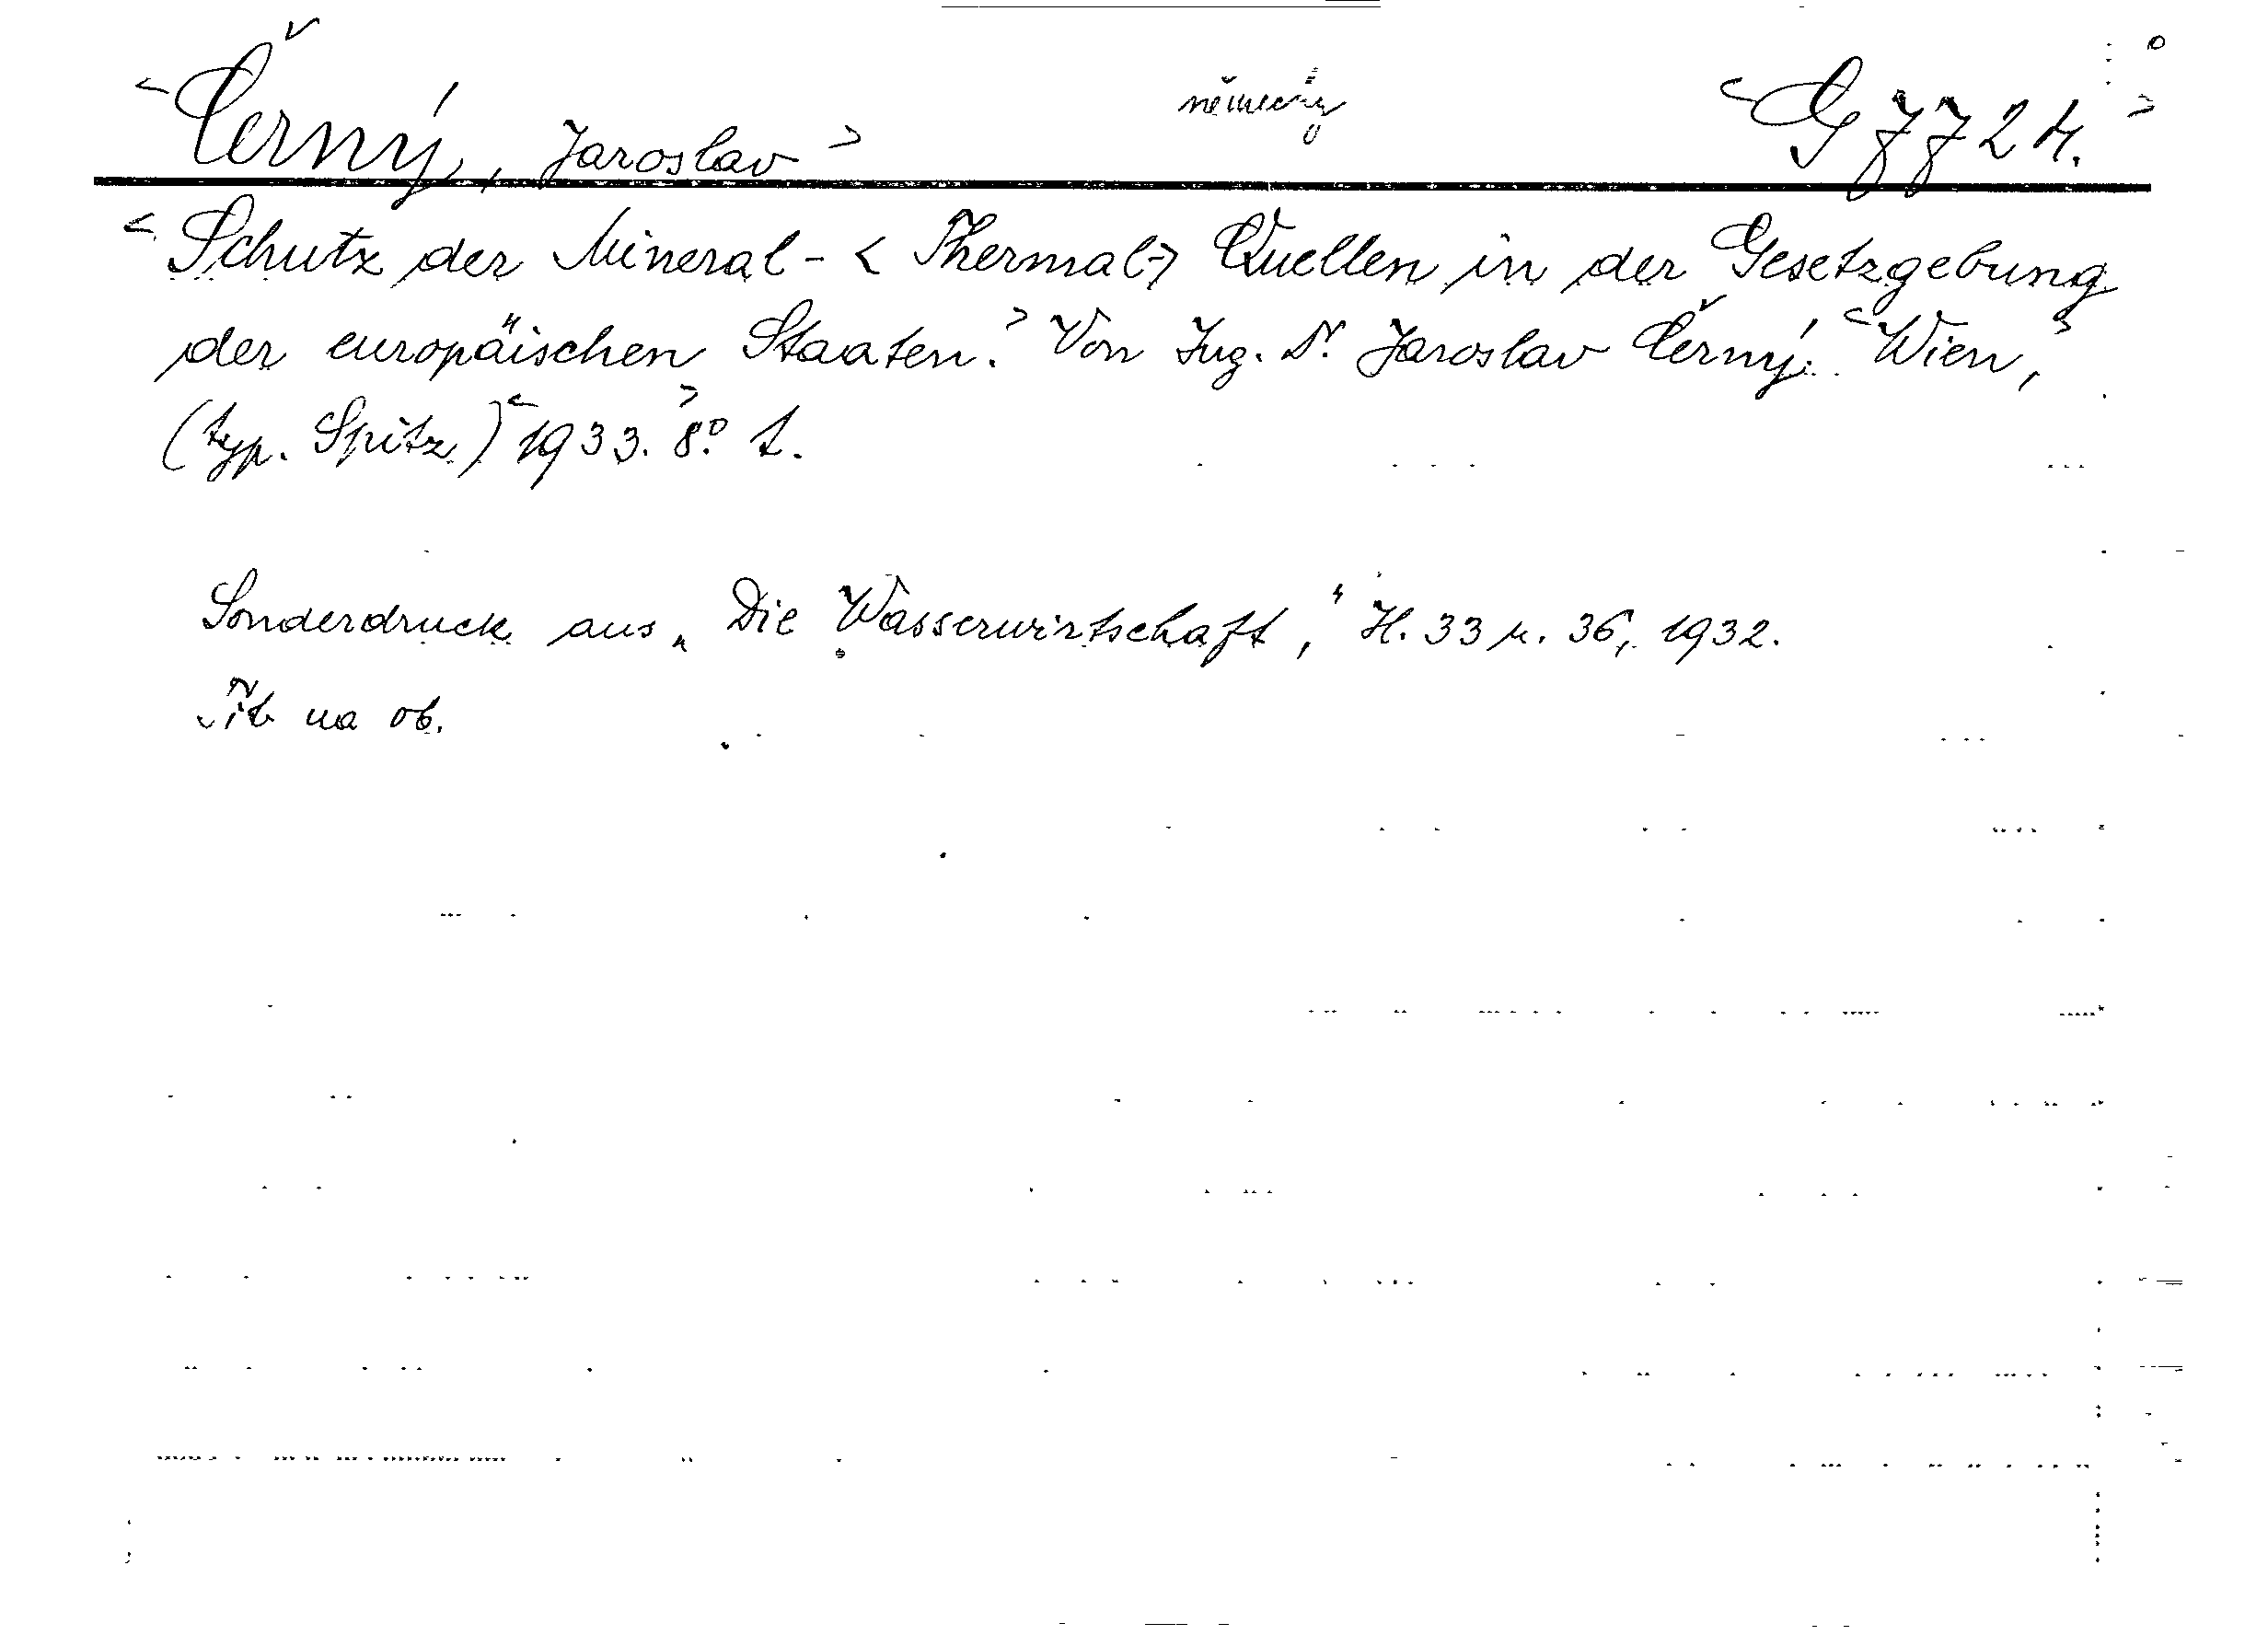 <Černý, Jaroslav> německy <G 7724.>
<Schutz der Mineral- <Thermal-> Quellen in der Gesetzgebung
der europäischen Staaten.> Von Ing. Dr. Jaroslav Černý. <Wien,>
(typ. Spitz.) <1933.> 8° 1.
Sonderdruck aus „Die Wasserwirtschaft," H. 33 u. 36, 1932.
na ob.